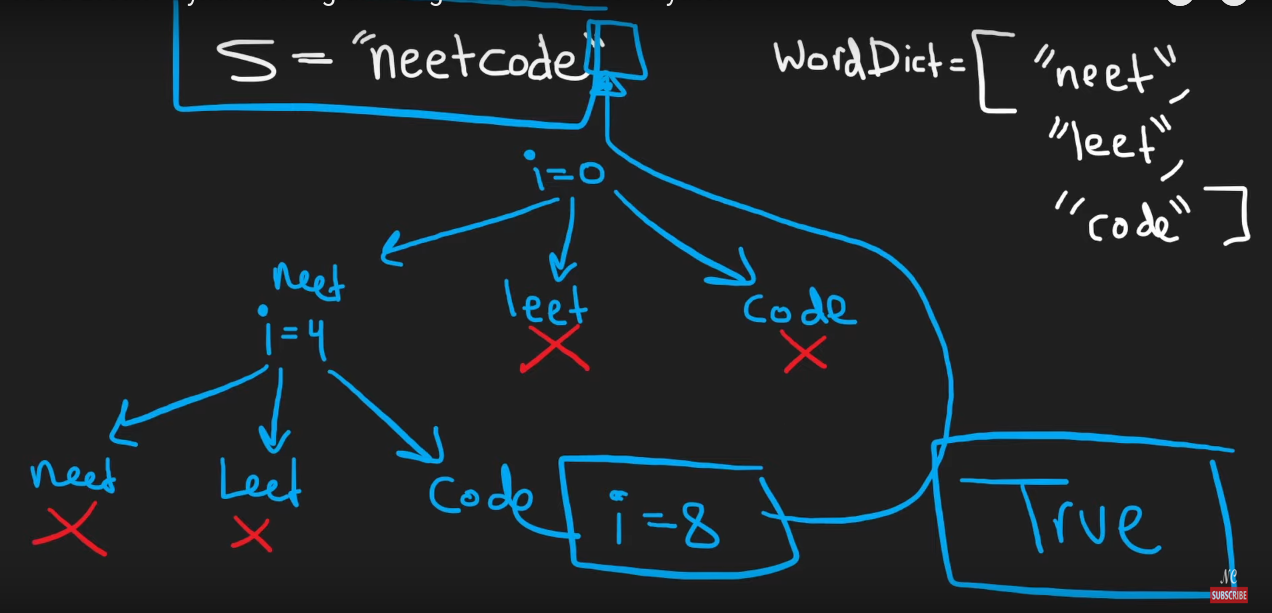 S = "neetcode"
WordDict = [ "neet",
"leet",
"code" ]
i=0
neet
leet
code
i=4
neet
Leet
Code
i=8
True
NC
SUBSCRIBE